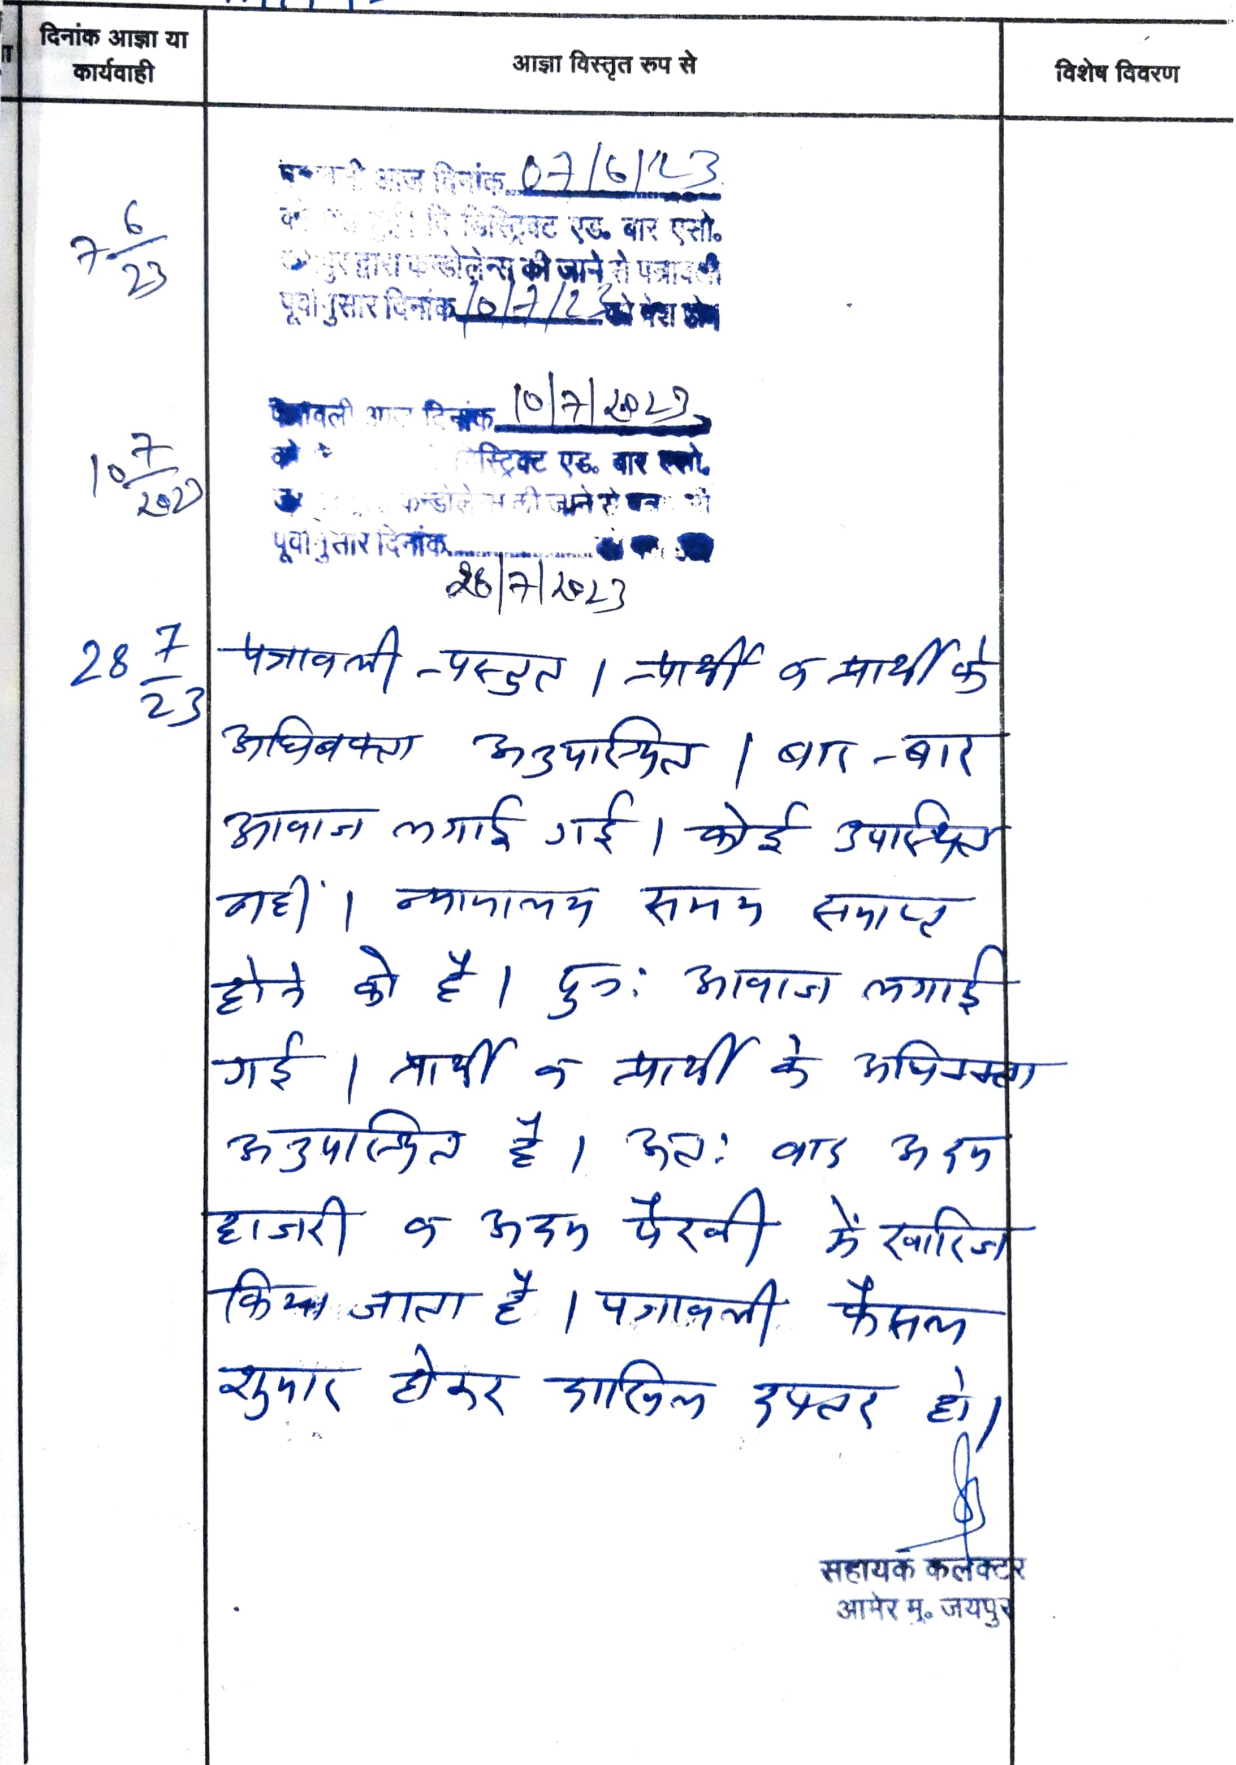 दिनांक आज्ञा या
कार्यवाही
आज्ञा विस्तृत रूप से
विशेष विवरण
7 6/23
आज दिनांक 07/6/23
डिस्ट्रिक्ट एड. बार एसो.
द्वारा कन्डोलेन्स की जाने से पत्रावली
पूर्वानुसार दिनांक 10/7/23 को पेश होवे
10 7/2023
पत्रावली आज दिनांक 10/7/2023
को डिस्ट्रिक्ट एड. बार एसो.
कन्डोलेन्स की जाने से
पूर्वानुसार दिनांक
28/7/2023
28 7/23
पत्रावली प्रस्तुत । प्रार्थी व प्रार्थी के
अधिवक्ता अनुपस्थित । बार-बार
आवाज लगाई गई । कोई उपस्थित
नहीं । न्यायालय समय समाप्त
होने को है । पुनः आवाज लगाई
गई । प्रार्थी व प्रार्थी के अधिवक्ता
अनुपस्थित है । अतः वाद अदम
हाजरी व अदम पैरवी में खारिज
किया जाता है । पत्रावली फैसल
शुमार होकर दाखिल दफ्तर हो ।
सहायक कलेक्टर
आमेर मु. जयपुर